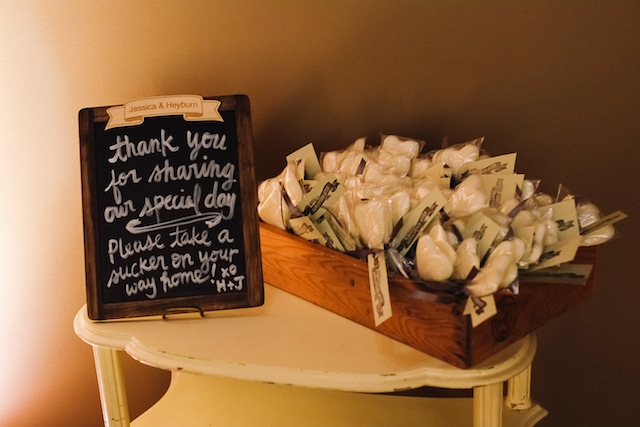 Jessica & Heyburn
thank you
for sharing
our special day
Please take a
sucker on your
way home! xo
H+J